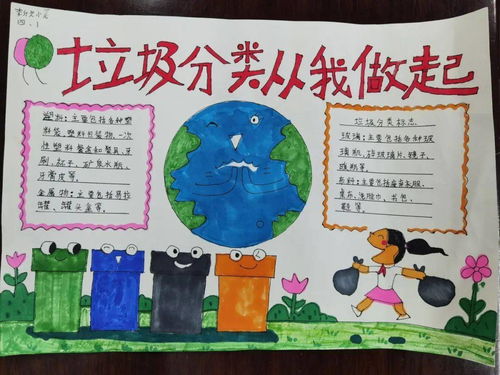 四、1
垃圾分类从我做起
塑料：主要包括各种塑
料袋、塑料包装物、一次
性塑料餐盒和餐具、牙
刷、杯子、矿泉水瓶、
牙膏皮等。
金属物：主要包括易拉
罐、罐头盒等。
垃圾分类标志
玻璃：主要包括各种玻
璃瓶、碎玻璃片、镜子、
暖瓶等。
布料：主要包括废弃衣服、
桌布、洗脸巾、书包、
鞋等。